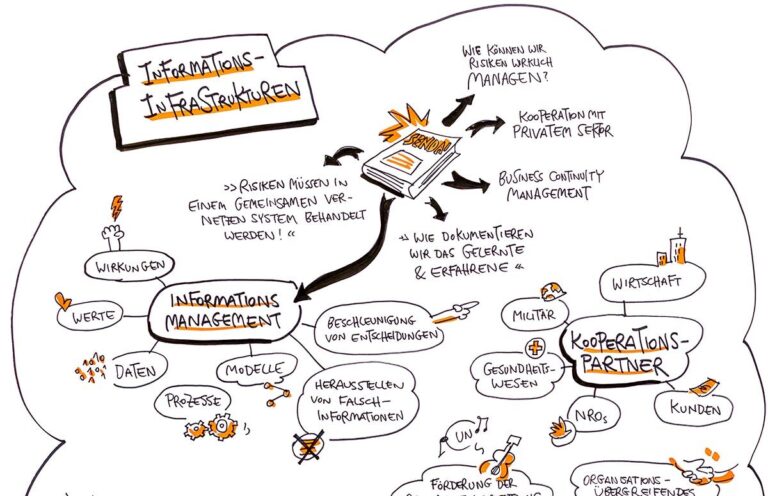 INFORMATIONS-
INFRASTRUKTUREN
WIE KÖNNEN WIR
RISIKEN WIRKLICH
MANAGEN?
SENDAI
KOOPERATION MIT
PRIVATEM SEKTOR
BUSINESS CONTINUITY
MANAGEMENT
»RISIKEN MÜSSEN IN
EINEM GEMEINSAMEN VER-
NETZEN SYSTEM BEHANDELT
WERDEN!«
»WIE DOKUMENTIEREN
WIR DAS GELERNTE
& ERFAHRENE«
WIRKUNGEN
WERTE
DATEN
PROZESSE
MODELLE
INFORMATIONS
MANAGEMENT
BESCHLEUNIGUNG
VON ENTSCHEIDUNGEN
HERAUSSTELLEN
VON FALSCH-
INFORMATIONEN
WIRTSCHAFT
MILITÄR
KOOPERATIONS-
PARTNER
GESUNDHEITS-
WESEN
NROs
KUNDEN
UN
FÖRDERUNG DER
ORGANISATIONS-
ÜBERGREIFENDES